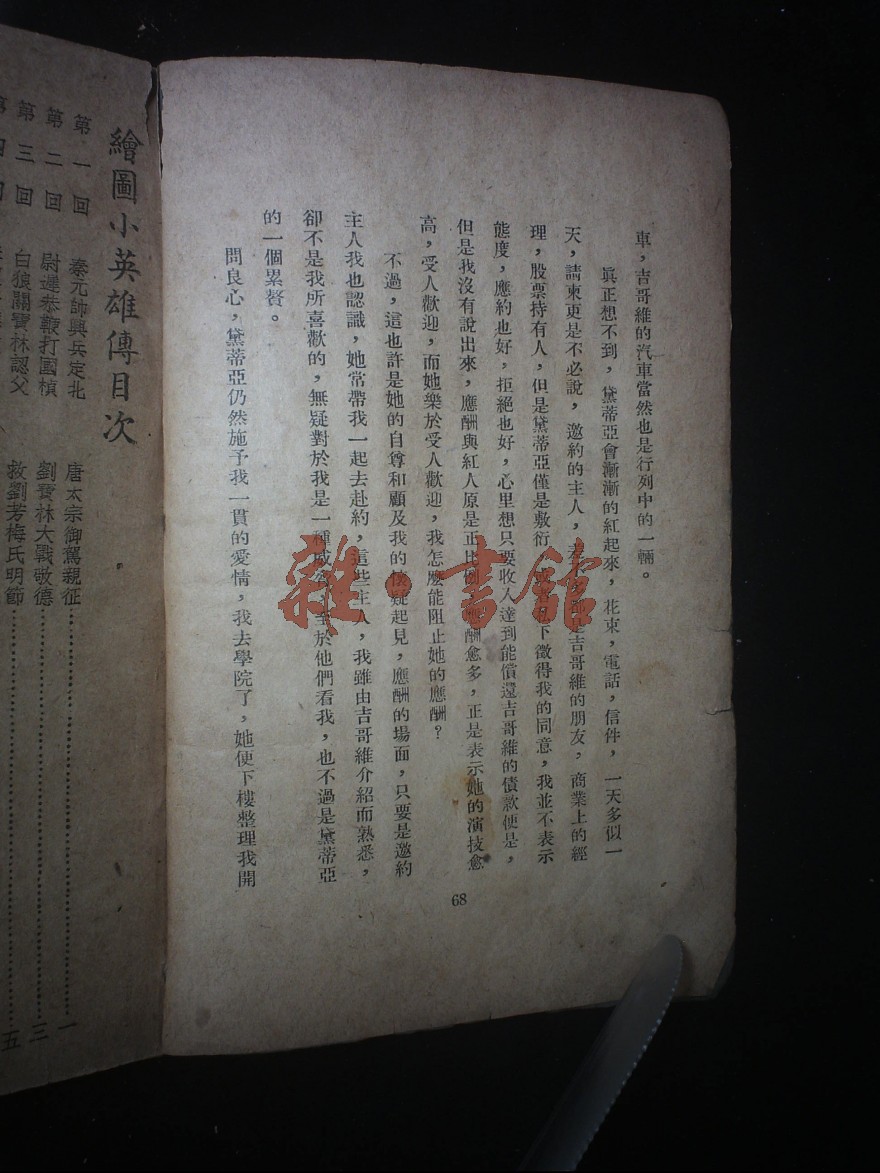 車，吉哥維的汽車當然也是行列中的一輛。
眞正想不到，黛蒂亞會漸漸的紅起來，花束，電話，信件，一天多似一
天，請柬更是不必說，邀約的主人，差不多都是吉哥維的朋友，商業上的經
理，股票持有人，但是黛蒂亞僅是敷衍，或者私下徵得我的同意，我並不表示
態度，應約也好，拒絕也好，心里想只要收入達到能償還吉哥維的債款便是，
但是我沒有說出來，應酬與紅人原是正比例，應酬愈多，正是表示她的演技愈
高，受人歡迎，而她樂於受人歡迎，我怎麼能阻止她的應酬？
不過，這也許是她的自尊和顧及我的懷疑起見，應酬的場面，只要是邀約
主人我也認識，她常帶我一起去赴約，這些主人，我雖由吉哥維介紹而熟悉，
卻不是我所喜歡的，無疑對於我是一種威脅，至於他們看我，也不過是黛蒂亞
的一個累贅。
問良心，黛蒂亞仍然施予我一貫的愛情，我去學院了，她便下樓整理我開
68
繪圖小英雄傳目次
第一回 秦元帥興兵定北 唐太宗御駕親征……一
第二回 尉遲恭鞭打國楨 劉寶林大戰敬德……三
第三回 白狼關寶林認父 救劉芳梅氏明節……五
第四回
雜·書館